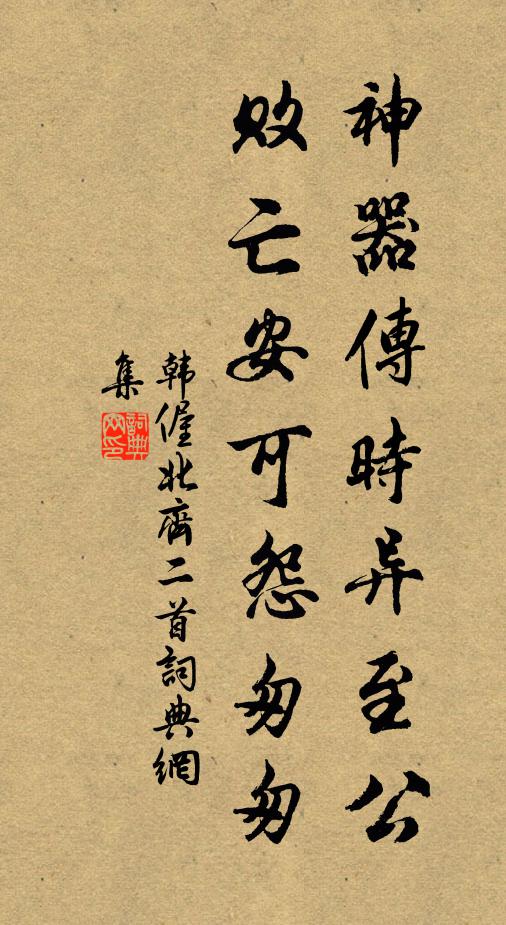 神器傳時异至公
敗亡安可怨匆匆
韩偓北齊二首詞典網
集
詞典网印